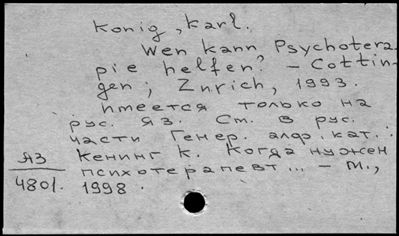 Konig, Karl.
Wen kann Psychotera-
pie helfen? - Cottin-
gen; Znrich, 1993.
имеется только на
рус. яз. См. в рус.
части Генер. алф. кат.:
Кенинг К. Когда нужен
психотерапевт... - М.,
1998.
ЯЗ
4801.